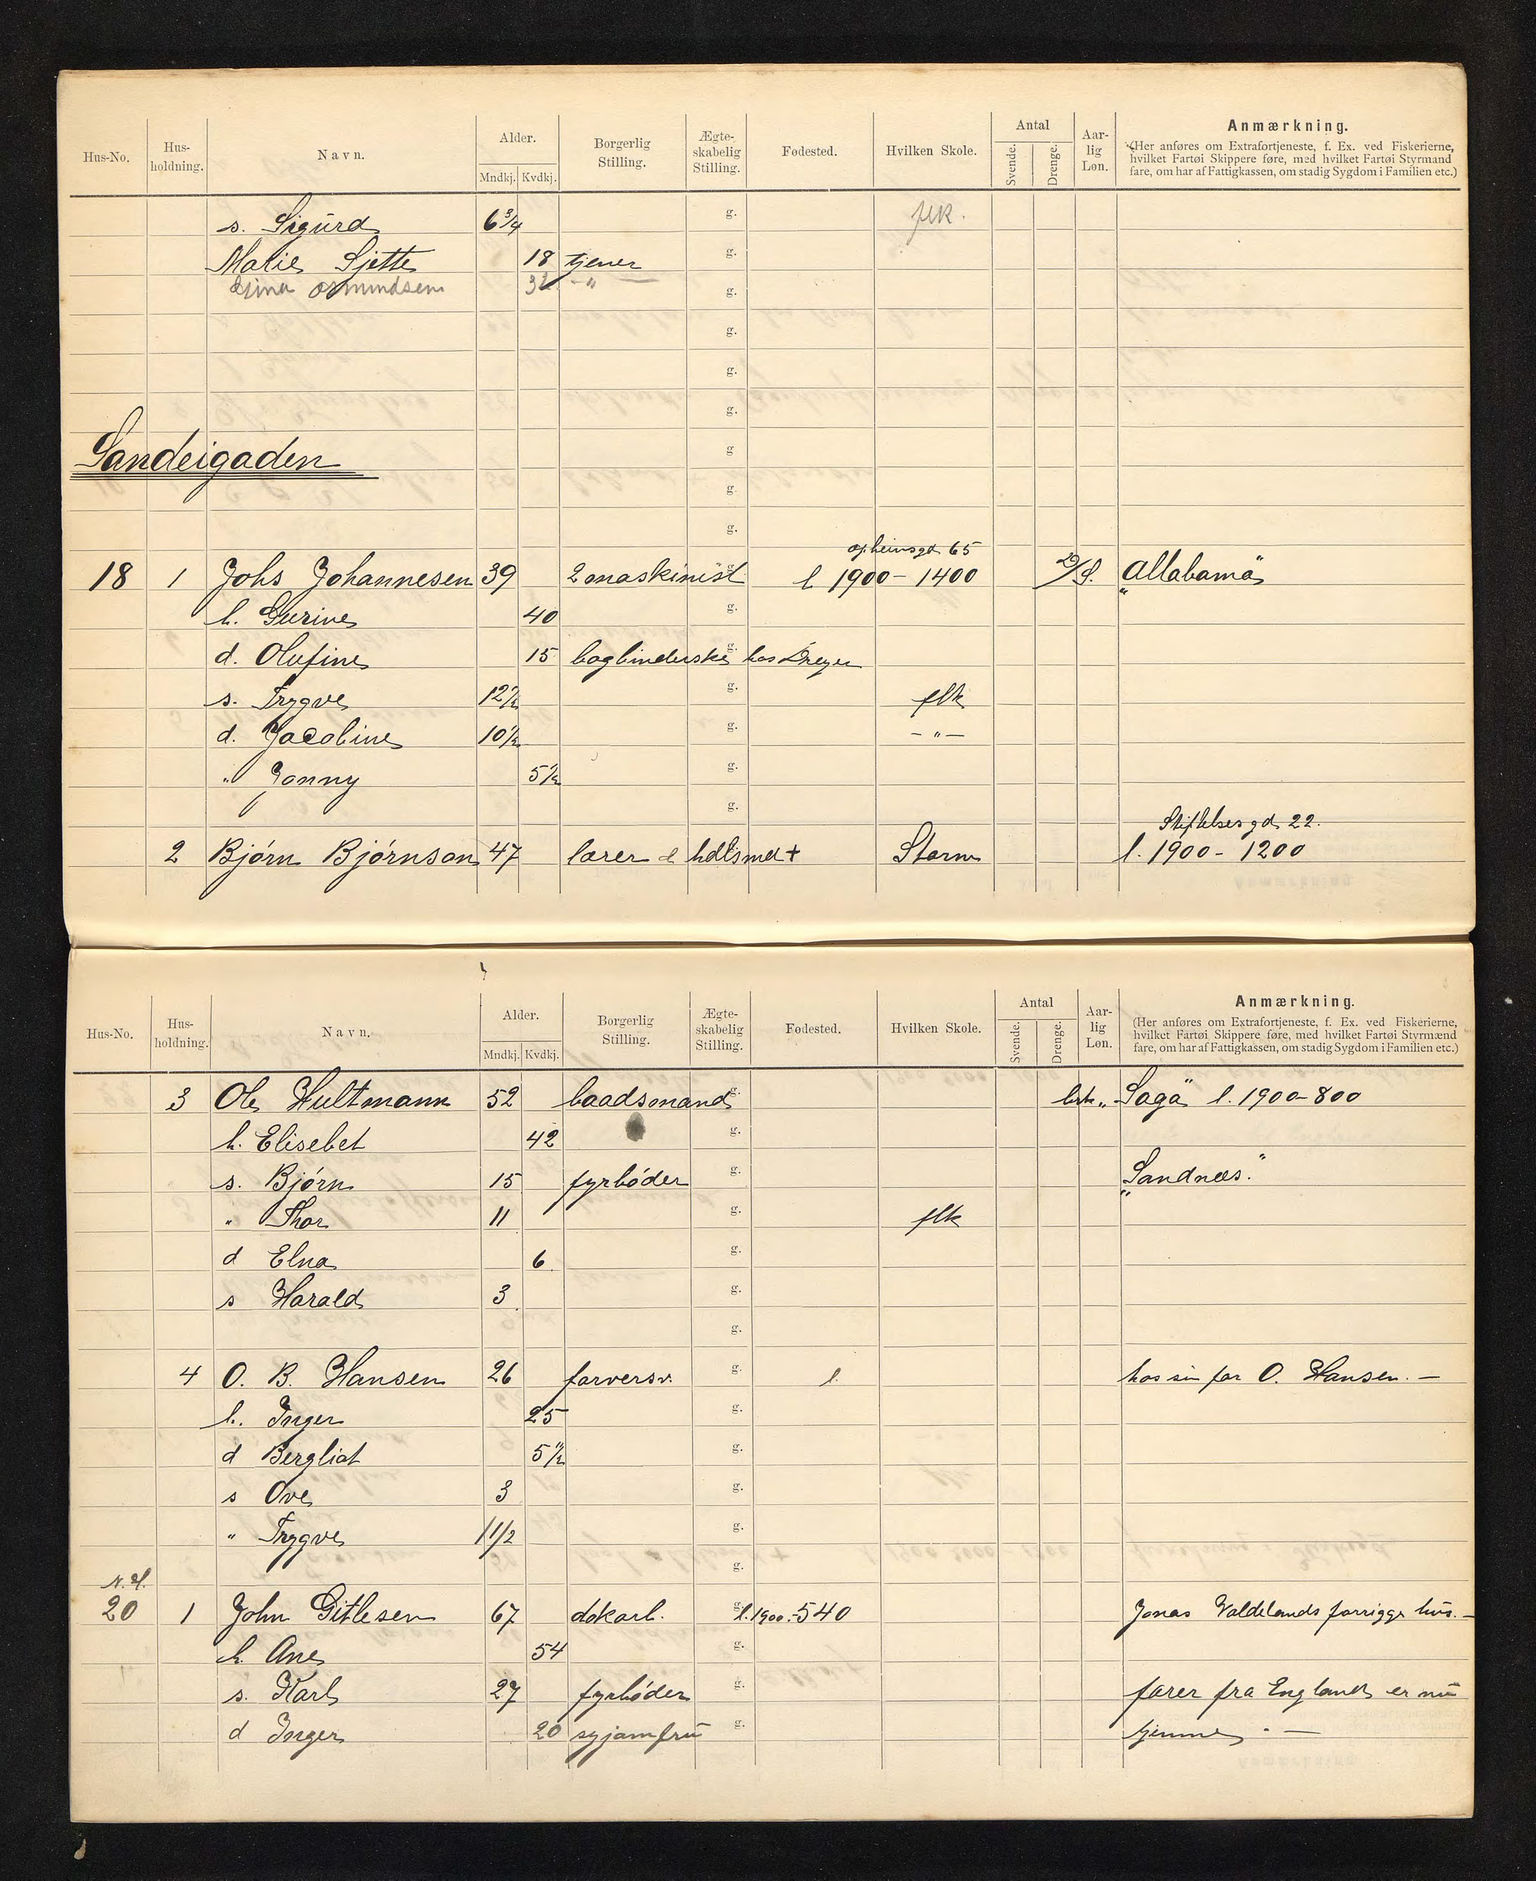 Hus-No. Hus-holdning. Navn. Alder. Mndkj. Kvdkj. Borgerlig Stilling. Ægte-skabelig Stilling. Fødested. Hvilken Skole. Antal Svende. Drenge. Aar-lig Løn. Anmærkning. (Her anføres om Extrafortjeneste, f. Ex. ved Fiskerierne, hvilket Fartøi Skippere føre, med hvilket Fartøi Styrmand fare, om har af Fattigkassen, om stadig Sygdom i Familien etc.)
s. Sigurd 6 3/4 g. flk.
Marie Sjette 18 tjener g.
Osmundsen 32 - " - g.
g.
g.
g.
Sandeigaden g.
g.
g.
opheimsgd 65
18 1 Johs Johannesen 39 2 maskinist g. l 1900 - 1400 "Allabama"
h. Gurine 40 g.
d. Olufine 15 bogbinderske g. hos Dreyer
s. Trygve 12 1/2 g. flk
d. Jacobine 10 1/2 g. - " -
" Jonny 5 1/2 g.
g.
Stiftelsesgd 22.
2 Bjørn Bjørnson 47 lærer & hdlsmd + Storm l. 1900 - 1200
Hus-No. Hus-holdning. Navn. Alder. Mndkj. Kvdkj. Borgerlig Stilling. Ægte-skabelig Stilling. Fødested. Hvilken Skole. Antal Svende. Drenge. Aar-lig Løn. Anmærkning. (Her anføres om Extrafortjeneste, f. Ex. ved Fiskerierne, hvilket Fartøi Skippere føre, med hvilket Fartøi Styrmænd fare, om har af Fattigkassen, om stadig Sygdom i Familien etc.)
3 Ole Hultmann 52 baadsmand g. "Saga" l. 1900 - 800
h. Elisebet 42 g.
s. Bjørn 15 fyrbøder g. "Sandnæs."
" Thor 11 g. flk
d Elna 6 g.
s Harald 3 g.
g.
4 O. B. Hansen 26 farversv. g. l. hos sin far O. Hansen. -
h. Inger 25 g.
d Bergliot 5 1/2 g.
s Ove 3 g.
" Trygve 1 1/2 g.
g.
N. H.
20 1 John Gitlesen 67 dokarb. g. l. 1900. - 540 Jonas Valdelands forrigge hus. -
h. Ane 54 g.
s. Karl 27 fyrbøder g. farer fra England er nu
d Inger 20 syjomfru g. hjemme. -